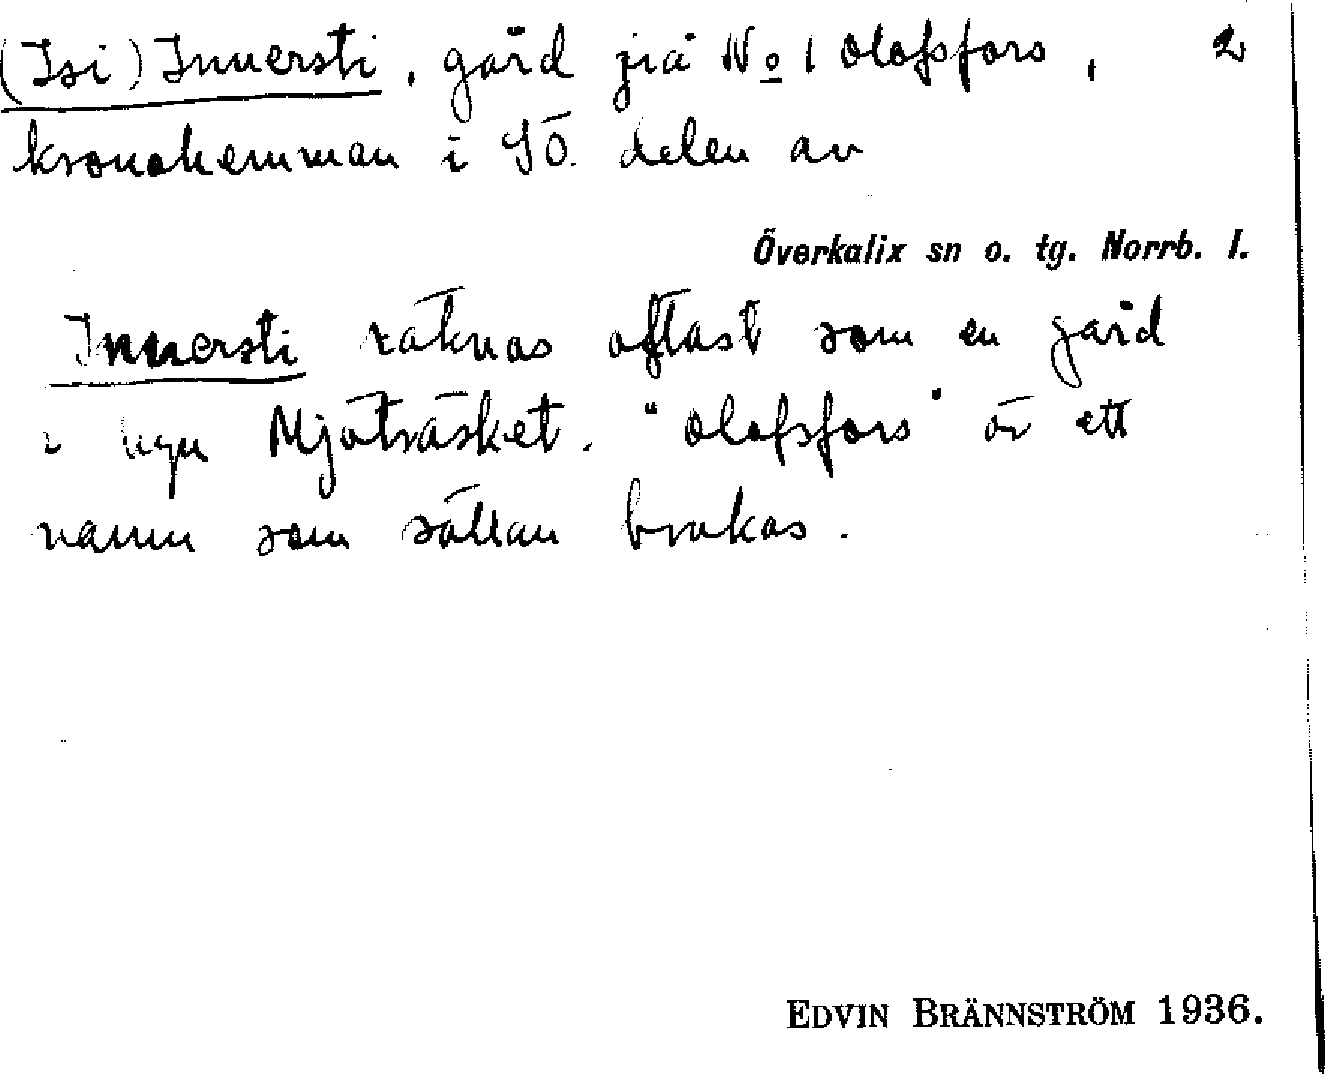 (Isi) Innersti, gård på No 1 Olofsfors, 2
kronohemman i SÖ. delen av
Överkalix sn o. tg. Norrb. l.
Innersti räknas oftast som en gård
i byn Mjöträsket. "Olofsfors" är ett
namn som sällan brukas.
EDVIN BRÄNNSTRÖM 1936.